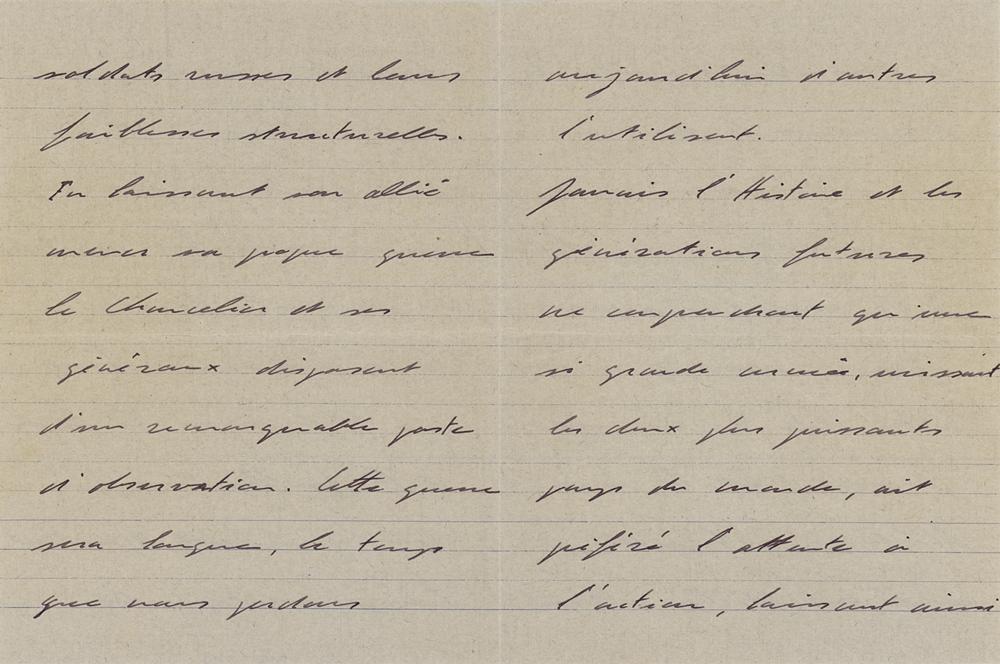 soldats russes et leurs
faiblesses structurelles.
En laissant son allié
mener sa propre guerre
le Chancelier et ses
généraux disposent
d'un remarquable poste
d'observation. Cette guerre
sera longue, le temps
que nous perdons
aujourd'hui d'autres
l'utilisent.
Jamais l'Histoire et les
générations futures
ne comprendront qu'une
si grande armée, unissant
les deux plus puissants
pays du monde, ait
préféré l'attente à
l'action, laissant ainsi